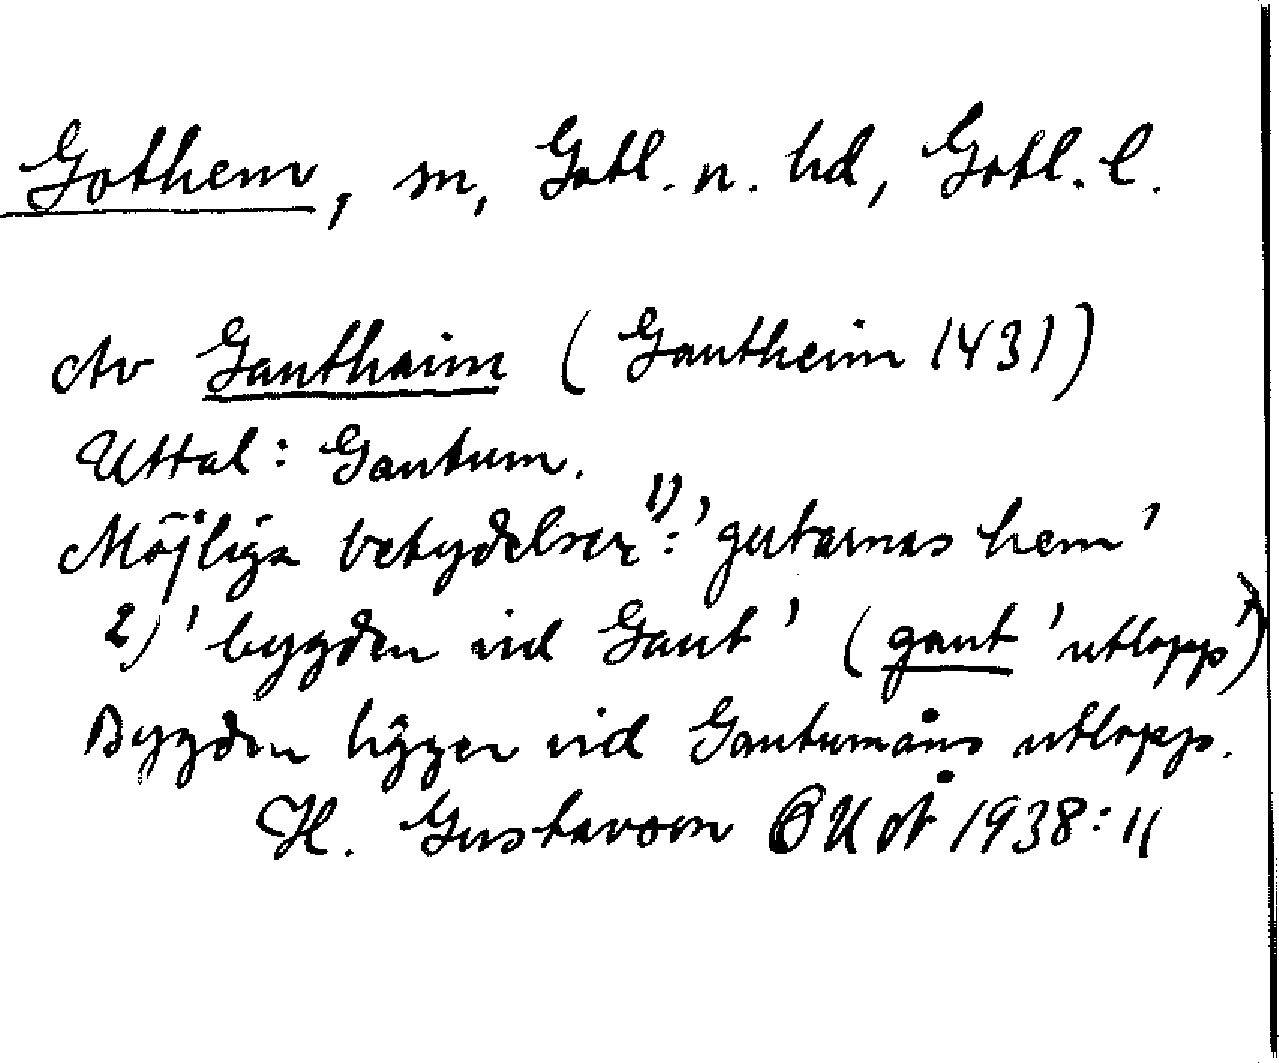 Gothem, sn, Gotl. n. hd, Gotl. l.
Av Gauthaim (Gautheim 1431)
Uttal: Gautum.
Möjliga betydelser 1): 'gutarnas hem'
2) 'bygden vid Gaut' (gaut 'utlopp')
Bygden ligger vid Gautumåns utlopp.
H. Gustavson OUÅ 1938:11